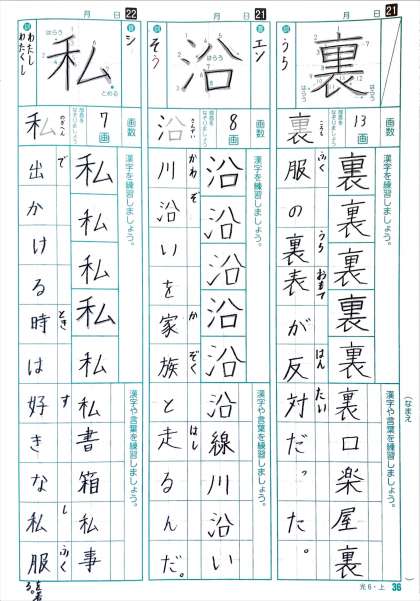 21
月 日
訓 うら
裏
はらう
はらう
画数 13画
部首をなぞりましょう。
裏 ころも
漢字を練習しましょう。
裏裏裏裏裏
漢字や言葉を練習しましょう。
裏口楽屋裏
ふく うら おもて はん たい
服の裏表が反対だった。
21
月 日
音 エン
訓 そう
沿
はらう
画数 8画
部首をなぞりましょう。
沿 さんずい
漢字を練習しましょう。
沿沿沿沿沿
漢字や言葉を練習しましょう。
沿線川沿い
かわ ぞ か ぞく はし
川沿いを家族と走るんだ。
22
月 日
音 シ
訓 わたし わたくし
私
はらう
とめる
画数 7画
部首をなぞりましょう。
私 のぎへん
漢字を練習しましょう。
私私私私私
漢字や言葉を練習しましょう。
私書箱私事
で とき す し ふく
出かける時は好きな私服を着る。
(なまえ )
光6・上 36